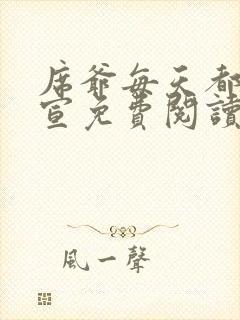 席爺每天都
宣免費閱讀
風一聲